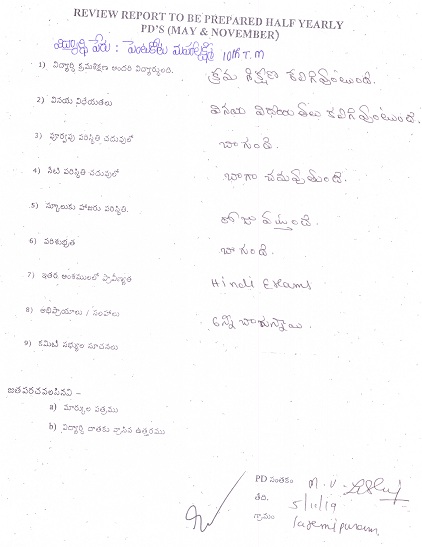 REVIEW REPORT TO BE PREPARED HALF YEARLY
PD'S (MAY & NOVEMBER)
విద్యార్థి పేరు : పెంటకోట మహాలక్ష్మి 10th T.M
1) విద్యార్థి క్రమశిక్షణ అందరి విద్యార్థులది. క్రమ శిక్షణ కలిగివుంటుంది.
2) వినయ విధేయతలు వినయ విధాయతలు కలిగివుంటుంది.
3) పూర్వపు పరిస్థితి చదువులో బాగుంది.
4) నేటి పరిస్థితి చదువులో బాగా చదువుతుంది.
5) స్కూలుకు హాజరు పరిస్థితి. రోజు వస్తుంది.
6) పరిశుభ్రత బాగుంది.
7) ఇతర అంశములలో ప్రావీణ్యత Hindi Exams
8) అభిప్రాయాలు / సలహాలు అన్నీ బాగున్నాయి.
9) కమిటీ సభ్యుల సూచనలు
జతపరచవలసినవి –
a) మార్కుల పత్రము
b) విద్యార్థి దాతకు వ్రాసిన ఉత్తరము
PD సంతకం M.V.
తేది. 5/11/19
గ్రామం Laxmipuram